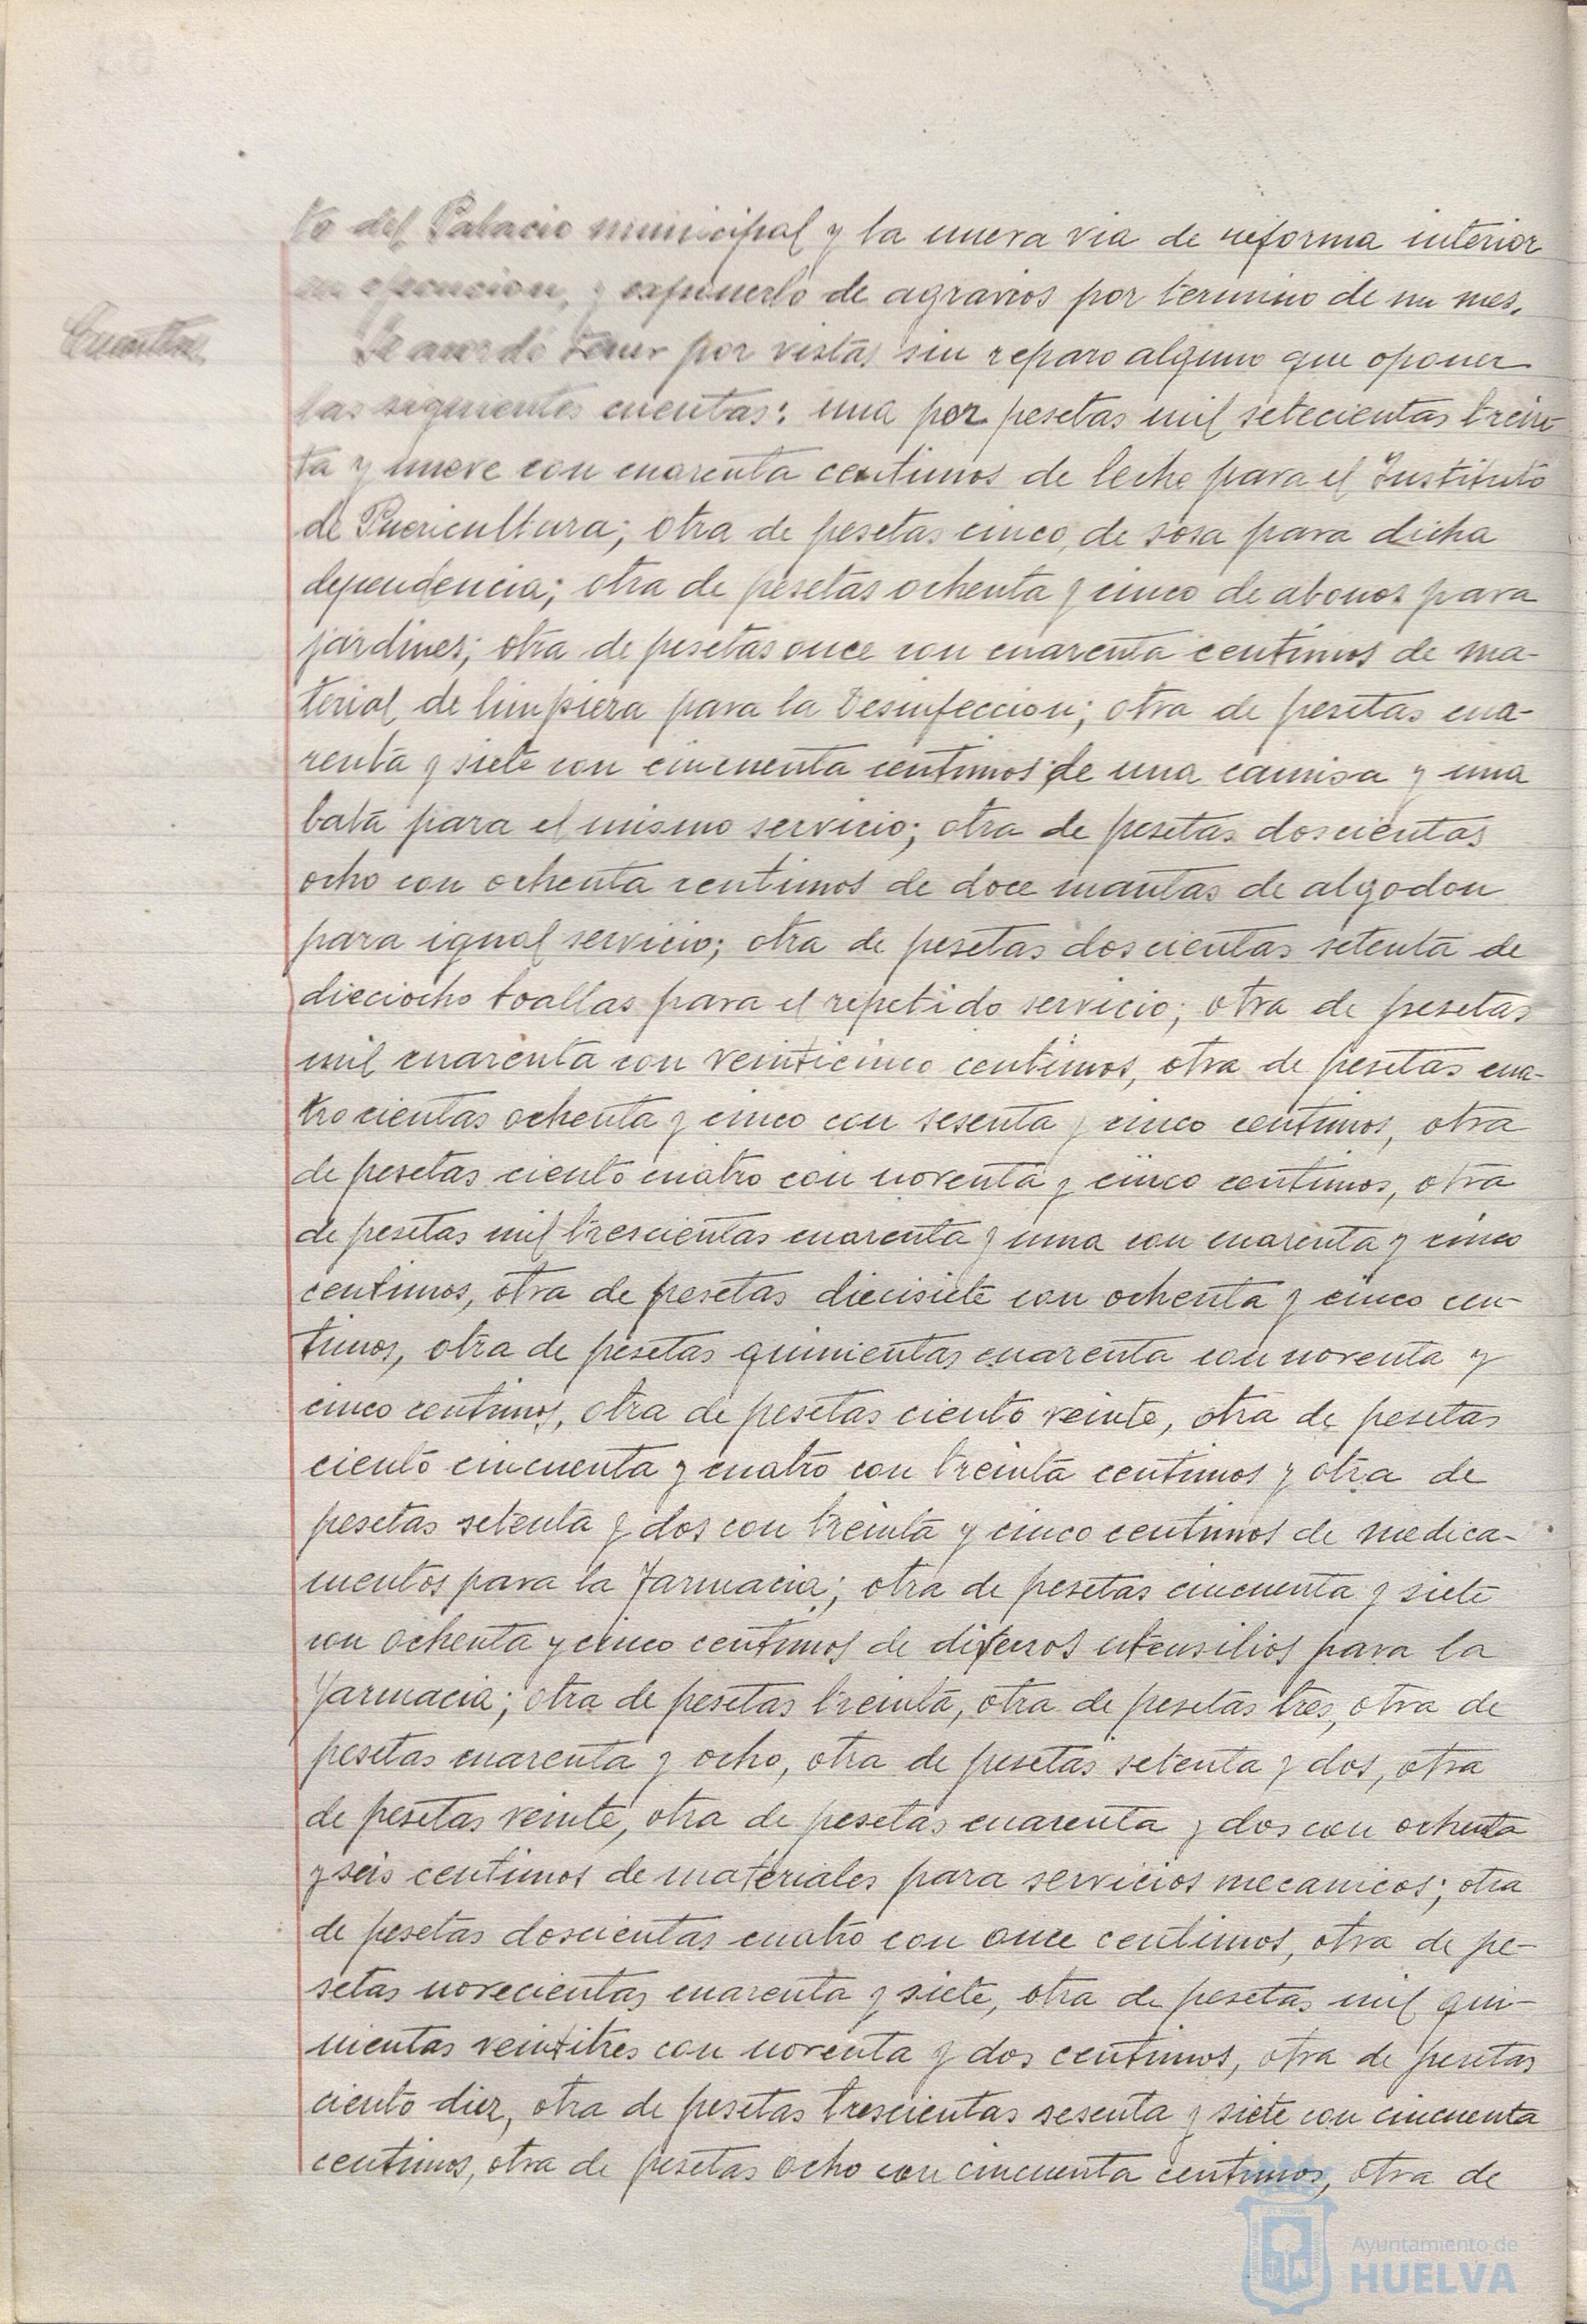 to del Palacio municipal y la nueva via de reforma interior
en ejecucion, y exponerlo de agravios por termino de un mes.
Cuentas
Se acordó tener por vistas sin reparo alguno que oponer
las siguientes cuentas: una por pesetas mil setecientas trein-
ta y nueve con cuarenta centimos de leche para el Instituto
de Puericultura; otra de pesetas cinco, de sosa para dicha
dependencia; otra de pesetas ochenta y cinco de abonos para
jardines; otra de pesetas once con cuarenta centimos de ma-
terial de limpieza para la Desinfeccion; otra de pesetas cua-
renta y siete con cincuenta centimos de una camisa y una
bata para el mismo servicio; otra de pesetas doscientas
ocho con ochenta centimos de doce mantas de algodon
para igual servicio; otra de pesetas doscientas setenta de
dieciocho toallas para el repetido servicio; otra de pesetas
mil cuarenta con veinticinco centimos, otra de pesetas cua-
trocientas ochenta y cinco con sesenta y cinco centimos, otra
de pesetas ciento cuatro con noventa y cinco centimos, otra
de pesetas mil trescientas cuarenta y una con cuarenta y cinco
centimos, otra de pesetas diecisiete con ochenta y cinco cen-
timos, otra de pesetas quinientas cuarenta con noventa y
cinco centimos, otra de pesetas ciento veinte, otra de pesetas
ciento cincuenta y cuatro con treinta centimos y otra de
pesetas setenta y dos con treinta y cinco centimos de medica-
mentos para la Farmacia; otra de pesetas cincuenta y siete
con ochenta y cinco centimos de diversos utensilios para la
Farmacia; otra de pesetas treinta, otra de pesetas tres, otra de
pesetas cuarenta y ocho, otra de pesetas setenta y dos, otra
de pesetas veinte, otra de pesetas cuarenta y dos con ochenta
y seis centimos de materiales para servicios mecanicos; otra
de pesetas doscientas cuatro con once centimos, otra de pe-
setas novecientas cuarenta y siete, otra de pesetas mil qui-
nientas veintitres con noventa y dos centimos, otra de pesetas
ciento diez, otra de pesetas trescientas sesenta y siete con cincuenta
centimos, otra de pesetas ocho con cincuenta centimos, otra de
Ayuntamiento de
HUELVA